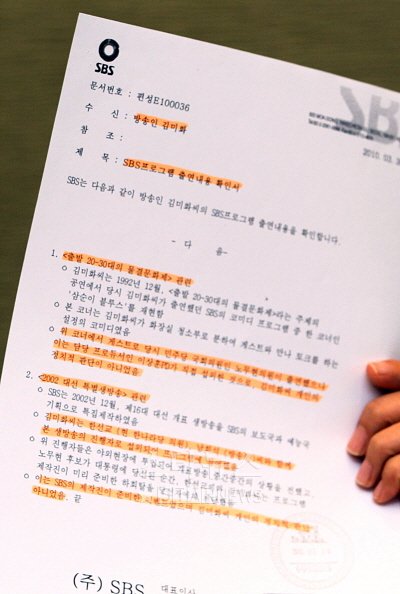 SBS
문서번호 : 편성E100036
수 신 : 방송인 김미화
참 조 :
제 목 : SBS프로그램 출연내용 확인서
SBS
2010. 03.
SBS는 다음과 같이 방송인 김미화씨의 SBS프로그램 출연내용을 확인합니다.
- 다 음 -
1. <출발 20-30대의 물결문화제> 관련
○ 김미화씨는 1992년 12월, <출발 20-30대의 물결문화제>라는 주제의
공연에서 당시 김미화씨가 출연했던 SBS의 코미디 프로그램 중 한 코너인
'삼순이 블루스'를 재현함
○ 본 코너는 김미화씨가 화장실 청소부로 분하여 게스트와 만나 토크를 하는
설정의 코미디였음
○ 위 코너에서 게스트로 당시 민주당 국회의원인 노무현의원이 출연했으나
이는 담당 프로듀서인 이상훈PD가 직접 섭외한 것으로, 김미화씨 개인의
정치적 판단이 아니었음
2. <2002 대선 특별생방송> 관련
○ SBS는 2002년 12월, 제16대 대선 개표 생방송을 SBS의 보도국과 예능국
기획으로 특집제작하였음
○ 김미화씨는 한선교(현 한나라당 의원),
본 생방송의 진행자로 섭외되어
○ 위 진행자들은 야외현장에 투입되어 개표방송 중간중간의 상황을 전했고,
노무현 후보가 대통령에 당선된 순간,
제작진이 미리 준비한
○ 이는 SBS의 제작진이 준비한
아니었음. 끝
(주) SBS 대표이사